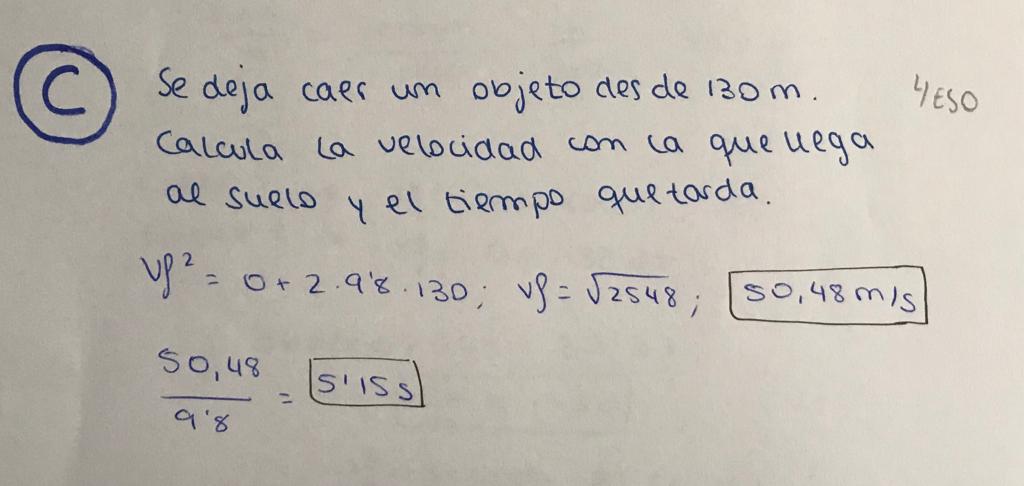 C
Se deja caer un objeto desde 130 m. 4 ESO
Calcula la velocidad con la que llega
al suelo y el tiempo que tarda.
Vf² = 0 + 2 · 9'8 · 130; vf = √2548; 50,48 m/s
50,48 / 9'8 = 5'15 s